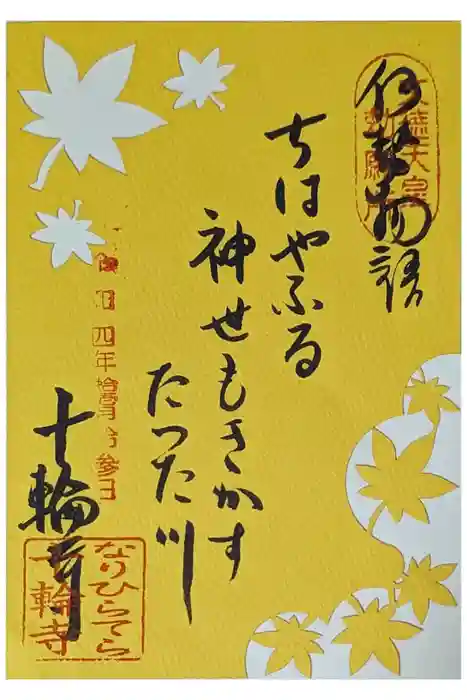 伊勢物語
文徳天皇
勅願所
ちはやふる
神世もきかす
たつた川
四年
参日
十輪寺
なりひらてら
十輪寺